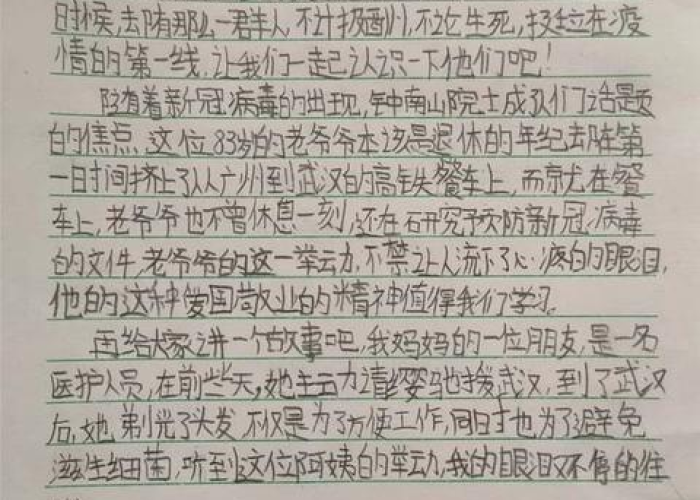 时候,去陏那么一君羊人,不计报酬,不论生死,投拉在疫
情的第一线,让我们一起认识一下他们吧!
随着新冠病毒的出现,钟南山院士成了人们话是页
的焦点,这位83岁的老爷爷本该是退休的年纪去陏第
一时间挤上了从广州到武汉的高铁餐车上,而就在餐
车上,老爷爷也不曾休息一刻,还在研究预防新冠病毒
的文件,老爷爷的这一举云力,不禁让人流下了心疼的眼泪,
他的这种爱国敬业的精神值得我们学习。
再给大家讲一个故事吧,我妈妈的一位朋友,是一名
医护人员,在前些天,她主云力请缨驰援武汉,到了武汉
后,她剃光了头发,不仅是为了方便工作,同时也为了避免
滋生细菌,听到这位阿姨的举动,我的眼泪不停的往